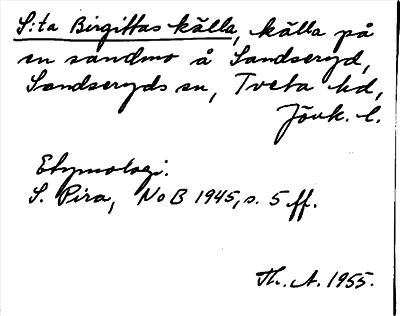 S:ta Birgittas källa, källa på
en sandmo å Sandseryd,
Sandseryds sn, Tveta hd,
Jönk. l.
Etymologi.
S. Pira, NoB 1945, s. 5 ff.
Th. A. 1955.